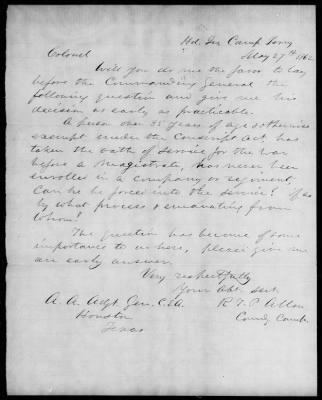 Hd. Qrs Camp Terry
May 27th 1862
Colonel
Will you do me the favor to lay
before the Commanding General the
following question and give me his
decision as early as practicable.
A person over 35 years of age & otherwise
exempt under the Conscript Act, has
taken the oath of Service for the war
before a Magistrate, has never been
enrolled in a company or regiment,
Can he be forced into the Service? if so
by what process & emanating from
whom?
The question has become of some
importance to us here, please give me
an early answer
Very respectfully
Your Obt. Servt.
A. A. Adjt. Gen. C.S.A. R. T. P. Allen
Houston Comdg Comdt.
Texas